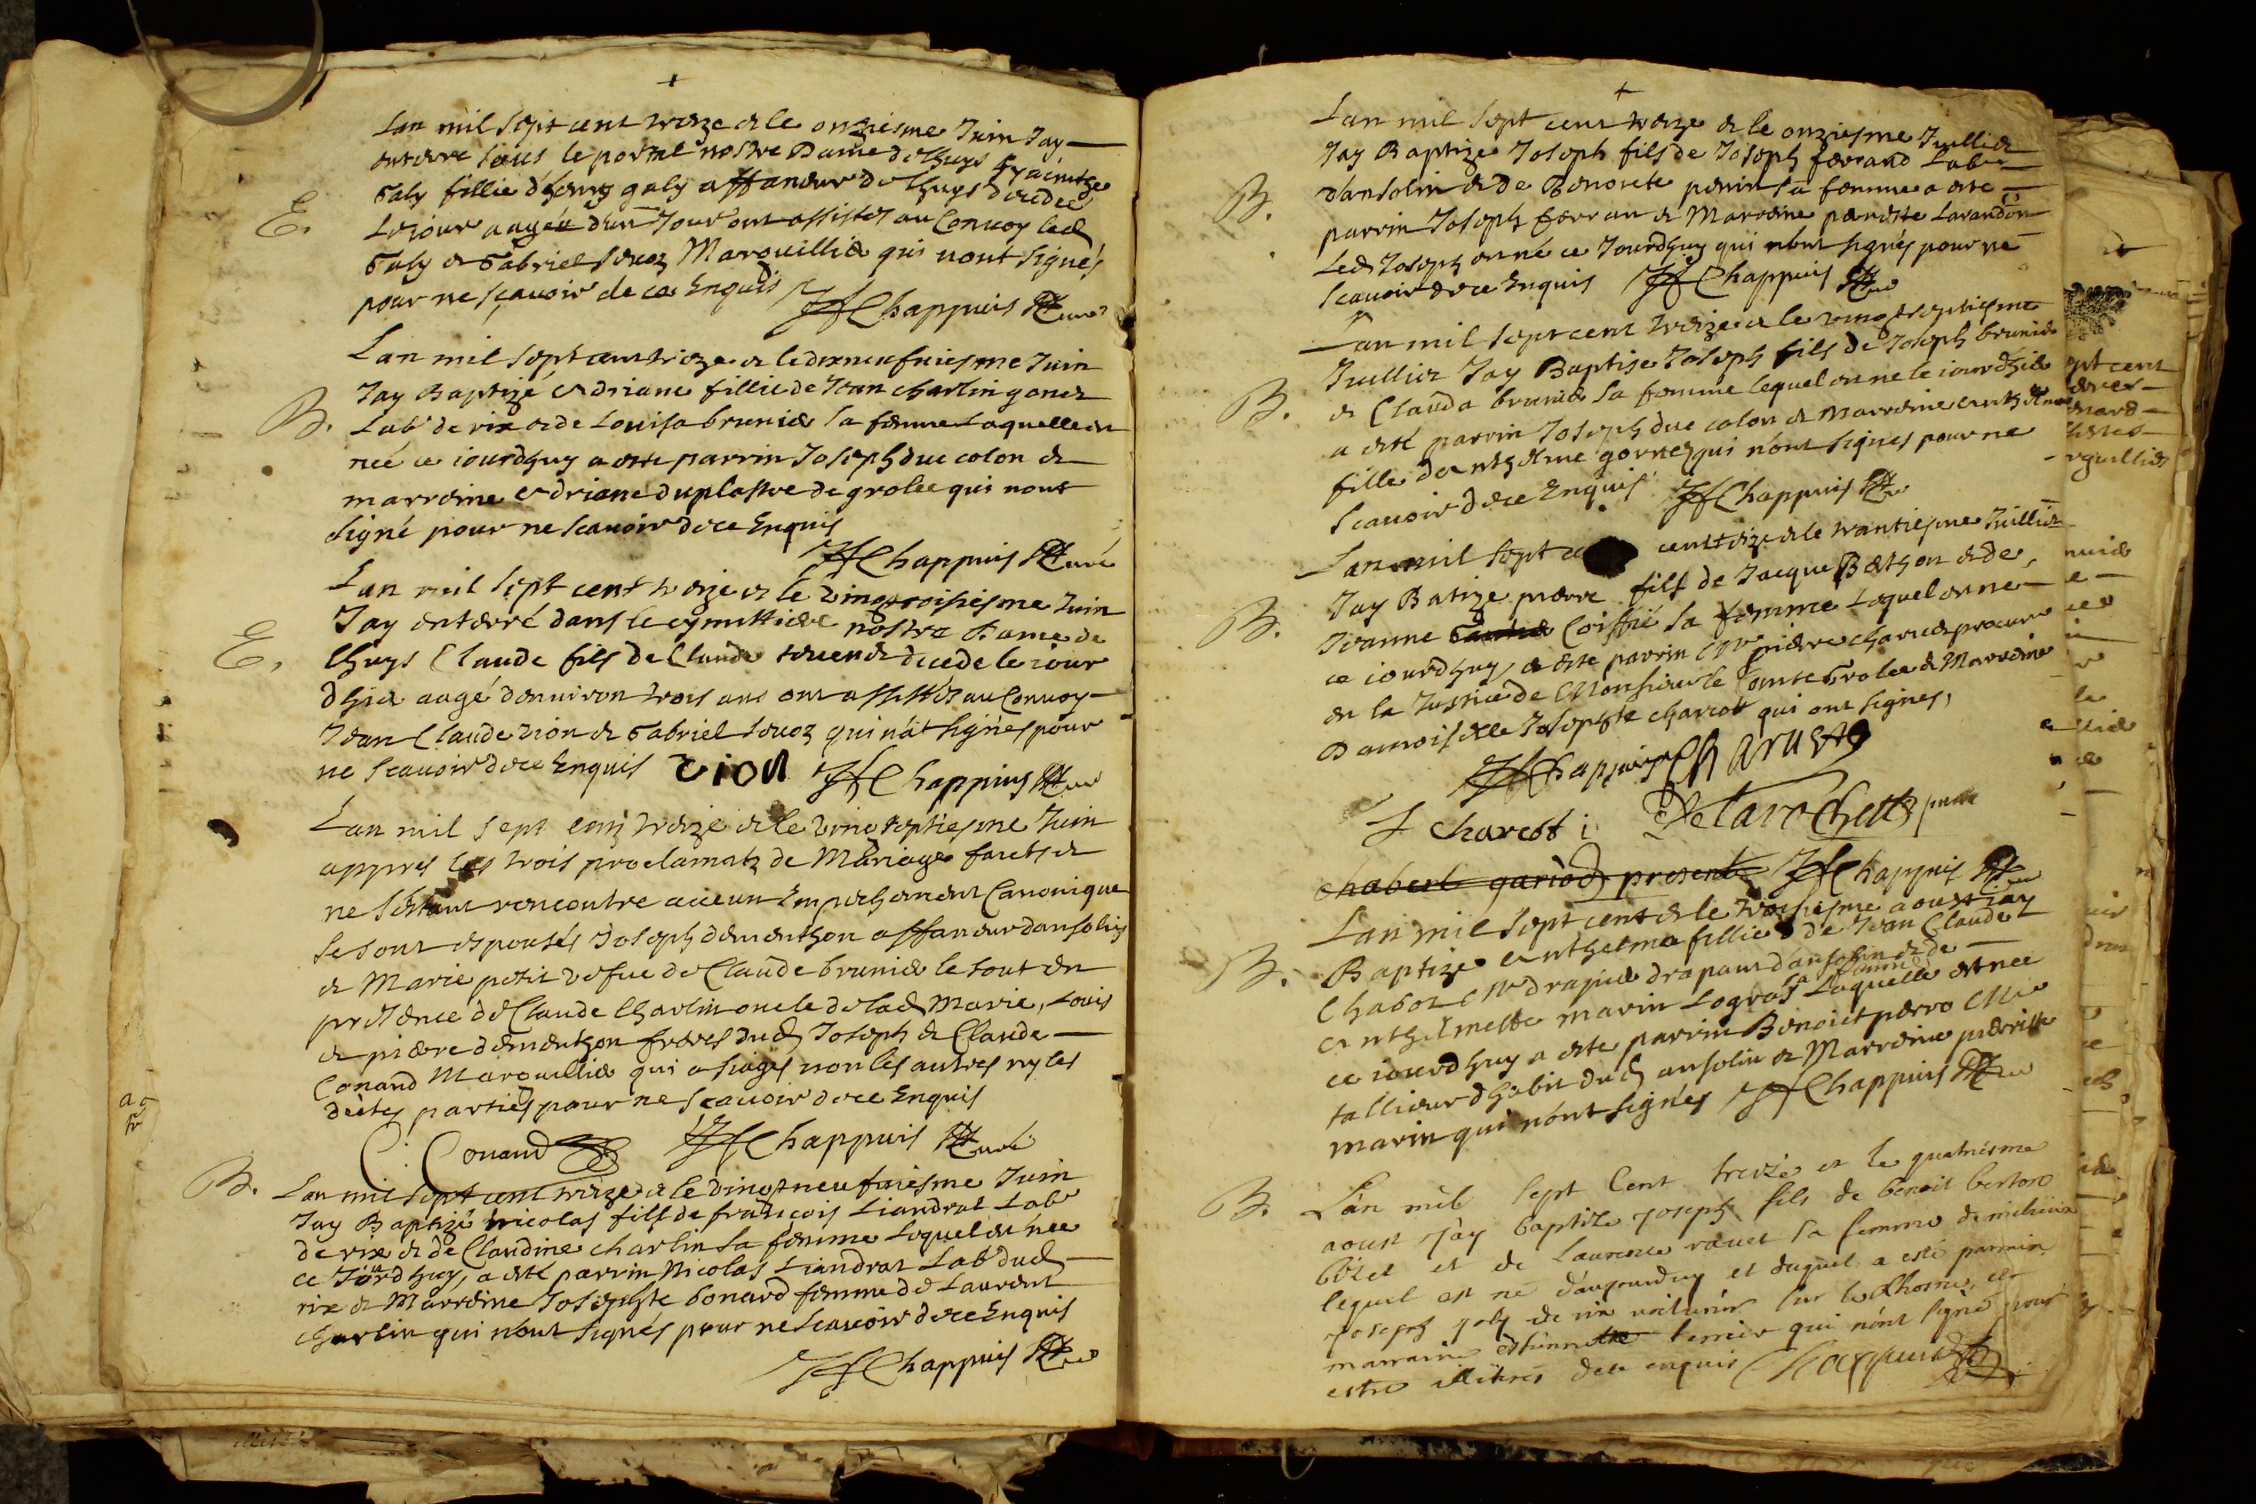 Lan mil sept cent treze & le onziesme Juin Jay
enterre sous le portal nostre Dame de lhuys hyacintge
Galy fillie dhenry galy affaneur de lhuys decedee
E.
Lejour aagee dun Jour ont assistes au Convoy led
Galy & Gabriel Marguillier qui nont signés
pour ne sçavoir de ce Enquis Chappuis Curé
Lan mil sept cent treze & le dixneufuiesme Juin
Jay Baptizé Adriane fillie de Jean charlin gonet
B.
Labr de rix & de Louisa brunier sa femme Laquelle est
neé ce iourdhuy a este parrin Joseph duc colon &
marreine Adriane duplastre de grolee qui nont
signé pour ne scauoir de ce Enquis
Chappuis Curé
Lan mil sept cent treize & le vingtroisiesme Juin
Jay enterré dans le cymittiere nostre Dame de
E,
lhuys Claude fils de Claude decede le iour
dhier aagé denuiron trois ans ont assistés au Convoy
Jean Claude vion & Gabriel qui nōt signés pour
ne scauoir de ce Enquis vion Chappuis Curé
Lan mil sept cent treize & le vingtseptiesme Juin
appres les trois proclamatz de Mariage faicts &
ne sestant rencontre aucun Empechement Canonique
se sont espousés Joseph dementhon affaneur dansolin
& Marie petit vefue de Claude brunier le tout en
presence de Claude Charlin oncle de lad Marie, Louis
& pierre dementhon freres dud Joseph & Claude
Conand Marguillier qui a signés non les autres ny les
dictes parties pour ne scauoir de ce Enquis
C. Conand Chappuis Curé
B.
Lan mil sept cent treize & le vingtneufuiesme Juin
Jay Baptizé nicolas fils de françois Liandrat Labr
de rix & de Claudine charlin sa femme Lequel est née
ce Jourdhuy, a esté parrin Nicolas Liandrat Labr dud
rix & Marreine Josephte bonard femme de Laurent
charlin qui nont signés pour ne scauoir de ce Enquis
Chappuis Curé
Lan mil sept cent treize & le onziesme Juillier
Jay Baptize Joseph fils de Joseph ferrand Labr
B.
dansolin & de Benoiste perrin sa femme a este
parrin Joseph ferran & Marreine pernette Larandon
Led Joseph est né ce Jourdhuy qui nont signés pour ne
scauoir de ce Enquis Chappuis Curé
Lan mil sept cent treize & le vingtseptiesme
Juillier Jay Baptise Joseph fils de Joseph brunier
B.
& Clauda brunier sa femme lequel est ne le iourdhier
a esté parrin Joseph duc colon & marreine anthelme
fille danthelme gonnet qui nont signés pour ne
scauoir de ce Enquis Chappuis Curé
Lan mil sept cent treize & le trantiesme Juillier
Jay Batize pierre fils de Jacque Bethon & de
B.
Jeanne Coissié sa femme Lequel est ne
ce iourdhuy a este parrin Mr pierre charuet procureur
en la Justice de Monsieur le Comte Grolee & Marreine
Damoiselle Josephte charcot qui ont signés,
Chappuis Charuet
J charcot Delarochette
chabert gariod present Chappuis Curé
Lan mil sept cent & le troisiesme aoust iay
B.
Baptize anthelme fillie de Jean Claude
Chabot Mr drapier drapant dansolin & de
anthelmette marin Logras sa femme Laquelle est nee
ce iourdhuy a este parrin Benoict perro Mre
tallieur dhabit dud ansolin & Marreine pierrette
marin qui nont signés Chappuis Curé
B.
Lan mil sept Cent treize et le quatriesme
aoust jay baptize joseph fils de benoit bertoro
et de Laurence rauet sa femme
lequel est né daujourdhuy et duquel a esté parrain
joseph galy de rix voiturier sur le Rhosne, et
marraine estiennette qui nont signé pour
estre illitérés de ce enquis Chappuis